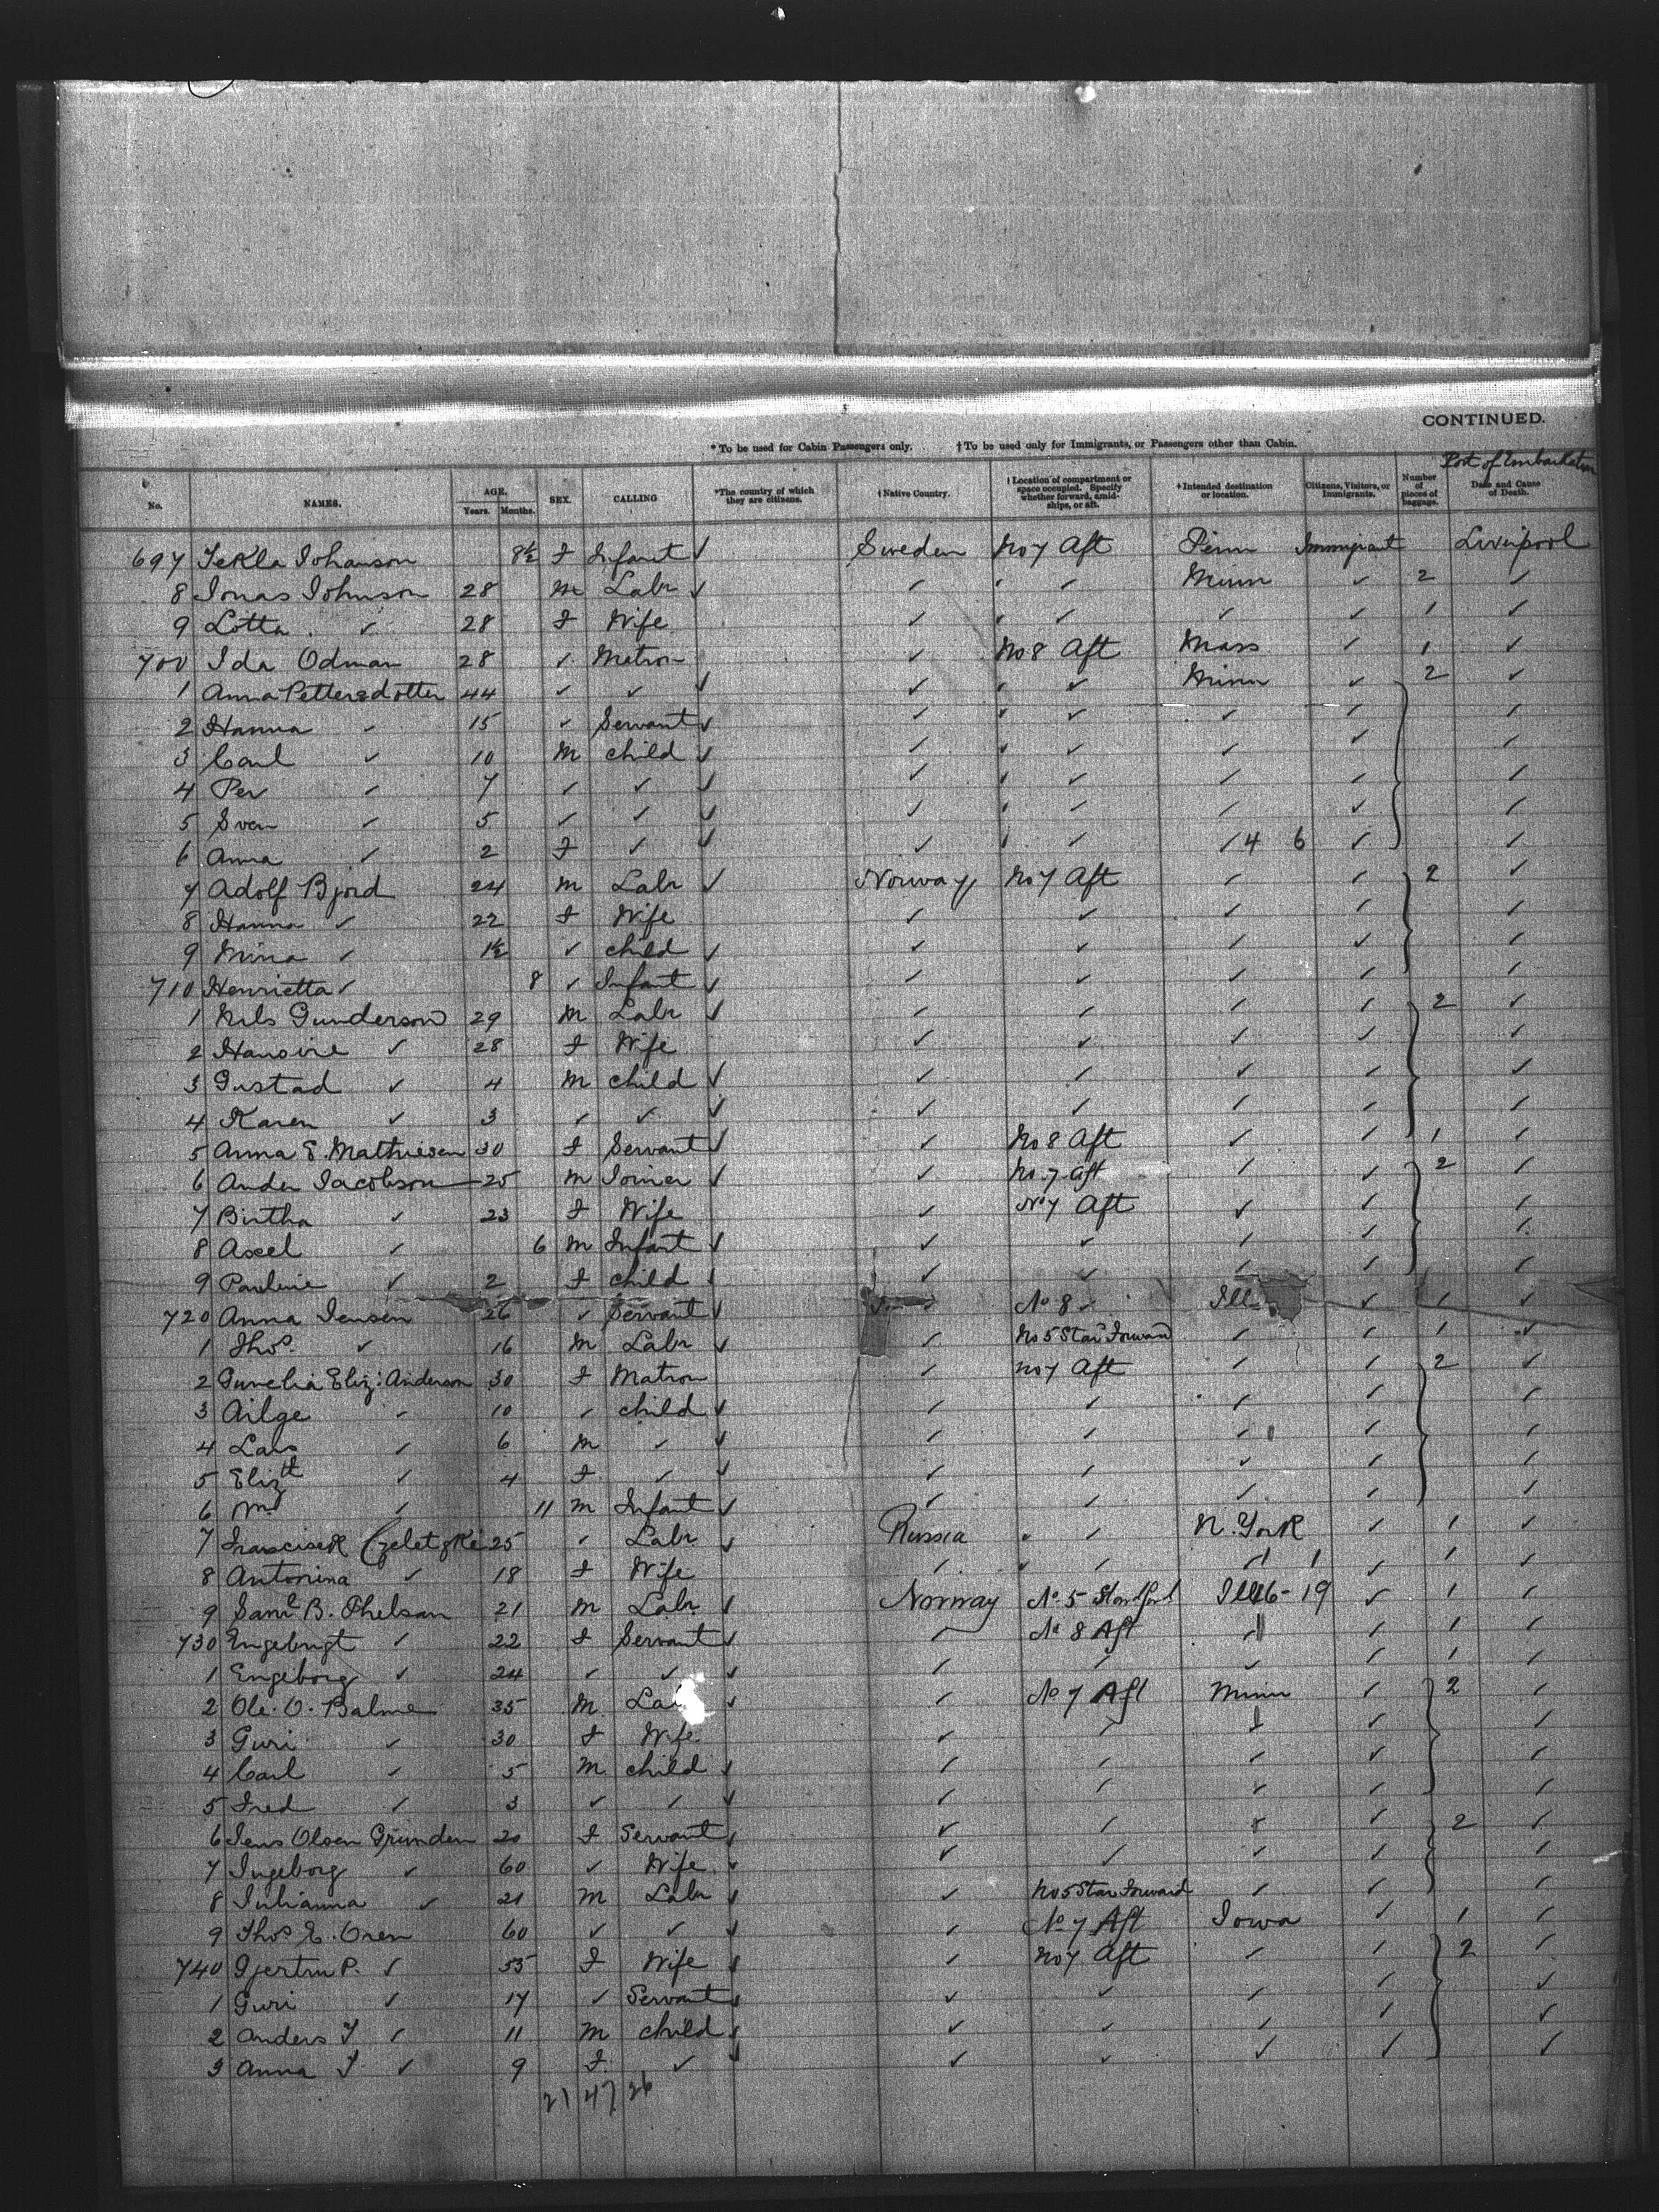 CONTINUED.
* To be used for Cabin Passengers only. † To be used only for Immigrants, or Passengers other than Cabin.
Port of Embarkation
No. NAMES. AGE. Years. Months. SEX. CALLING *The country of which they are citizens. †Native Country. †Location of compartment or space occupied. Specify whether forward, amidships, or aft. †Intended destination or location. Citizens, Visitors, or Immigrants. Number of pieces of baggage. Date and Cause of Death.
697 Tekla Johanson 8½ f Infant ✓ Sweden No 7 Aft Penn Immigrant Liverpool
8 Jonas Johnson 28 m Labr ✓ ✓ ✓ ✓ Minn ✓ 2 ✓
9 Lotta ✓ 28 f Wife ✓ ✓ ✓ ✓ ✓ 1 ✓
700 Ida Odman 28 ✓ Matron ✓ No 8 Aft Mass ✓ 1 ✓
1 Anna Pettersdotter 44 ✓ ✓ ✓ ✓ ✓ ✓ Minn ✓ 2 ✓
2 Hanna ✓ 15 ✓ Servant ✓ ✓ ✓ ✓ ✓ ✓ ✓
3 Carl ✓ 10 m child ✓ ✓ ✓ ✓ ✓ ✓ ✓
4 Per ✓ 7 ✓ ✓ ✓ ✓ ✓ ✓ ✓ ✓ ✓
5 Sven ✓ 5 ✓ ✓ ✓ ✓ ✓ ✓ ✓ ✓ ✓
6 Anna ✓ 2 f ✓ ✓ ✓ ✓ ✓ ✓ 4 6 ✓ ✓
7 Adolf Bjord 24 m Labr ✓ Norway No 7 Aft ✓ ✓ 2 ✓
8 Hanna ✓ 22 f Wife ✓ ✓ ✓ ✓ ✓
9 Mina ✓ 1½ ✓ child ✓ ✓ ✓ ✓ ✓ ✓
710 Henrietta ✓ 8 ✓ Infant ✓ ✓ ✓ ✓ ✓ ✓
1 Nils Gunderson 29 m Labr ✓ ✓ ✓ ✓ ✓ 2 ✓
2 Hansine ✓ 28 f Wife ✓ ✓ ✓ ✓ ✓
3 Gustad ✓ 4 m child ✓ ✓ ✓ ✓ ✓ ✓
4 Karen ✓ 3 ✓ ✓ ✓ ✓ ✓ ✓ ✓ ✓
5 Anna E. Mathiesen 30 f Servant ✓ ✓ No 8 Aft ✓ ✓ 1 ✓
6 Ander Jacobson 25 m Joiner ✓ ✓ No. 7 Aft ✓ ✓ 2 ✓
7 Birtha ✓ 23 f Wife ✓ No 7 Aft ✓ ✓ ✓
8 Axel ✓ 6 m Infant ✓ ✓ ✓ ✓ ✓ ✓
9 Pauline ✓ 2 f child ✓ ✓ ✓ ✓ ✓
720 Anna Jensen 26 ✓ Servant ✓ ✓ No 8 ✓ Ill ✓ 1 ✓
1 Thos. ✓ 16 m Labr ✓ ✓ No 5 Star Forward ✓ ✓ 1 ✓
2 Eliz: Anderson 30 f Matron ✓ No 7 Aft ✓ ✓ 2 ✓
3 Ailge ✓ 10 ✓ child ✓ ✓ ✓ ✓ ✓ ✓
4 Lars ✓ 6 m ✓ ✓ ✓ ✓ ✓ ✓ ✓
5 Elizth ✓ 4 f ✓ ✓ ✓ ✓ ✓ ✓ ✓
6 Wm ✓ 11 m Infant ✓ ✓ ✓ ✓ ✓ ✓
7 Francisek 25 ✓ Labr ✓ Russia ✓ ✓ N. York ✓ 1 ✓
8 Antonina ✓ 18 f Wife ✓ ✓ ✓ ✓ ✓ 1 ✓
9 Saml B. Thelsan 21 m Labr ✓ Norway No 5 Ill 16-19 ✓ 1 ✓
730 Engebrigt ✓ 22 f Servant ✓ ✓ No 8 Aft ✓ ✓ 1 ✓
1 Engeborg ✓ 24 ✓ ✓ ✓ ✓ ✓ ✓ ✓ 1 ✓
2 Ole. O. Balme 35 m ✓ ✓ No 7 Aft Minn ✓ 2 ✓
3 Guri ✓ 30 f Wife ✓ ✓ ✓ ✓ ✓
4 Carl ✓ 5 m child ✓ ✓ ✓ ✓ ✓ ✓
5 Fred ✓ 3 ✓ ✓ ✓ ✓ ✓ ✓ ✓ ✓
6 Jens Olsen Grunden 20 f Servant ✓ ✓ ✓ ✓ ✓ 2 ✓
7 Ingeborg ✓ 60 ✓ Wife ✓ ✓ ✓ ✓ ✓ ✓
8 Julianna ✓ 21 m Labr ✓ ✓ No 5 Star Forward ✓ ✓ ✓
9 Thos E. Oren 60 ✓ ✓ ✓ ✓ No 7 Aft Iowa ✓ 1 ✓
740 Gjertru P. ✓ 55 f Wife ✓ ✓ No 7 Aft ✓ ✓ 2 ✓
1 Guri ✓ 17 ✓ Servant ✓ ✓ ✓ ✓ ✓ ✓
2 Anders T ✓ 11 m child ✓ ✓ ✓ ✓ ✓ ✓
3 Anna T ✓ 9 f ✓ ✓ ✓ ✓ ✓ ✓ ✓
21 47 26